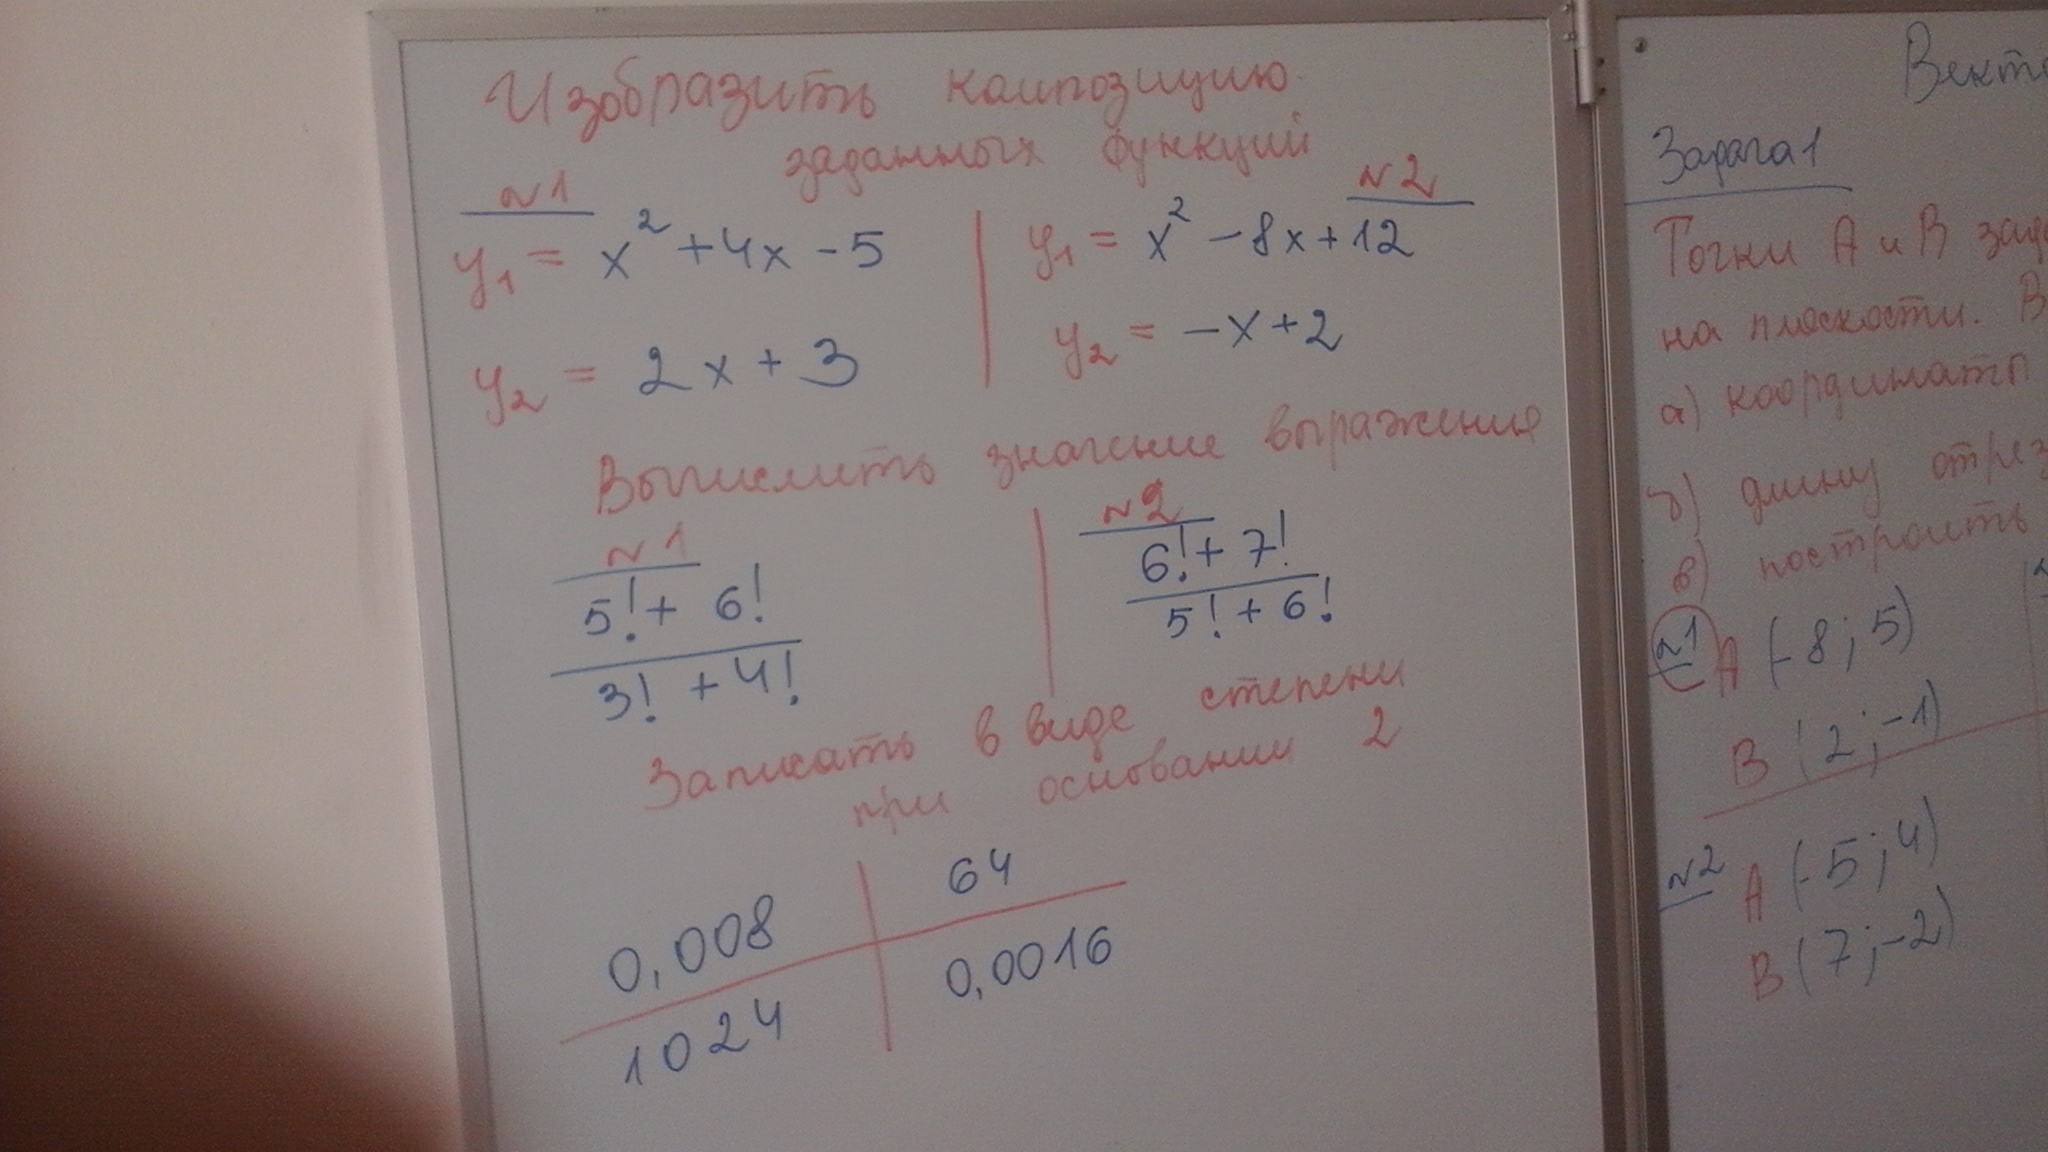 Изобразить композицию
заданных функций
№1
y₁ = x² + 4x - 5
y₂ = 2x + 3
№2
y₁ = x² - 8x + 12
y₂ = -x + 2
Вычислить значение выражения
№1
5! + 6!
3! + 4!
№2
6! + 7!
5! + 6!
Записать в виде степени
при основании 2
0,008
64
1024
0,0016
Задача 1
Точки А и В
на плоскости. В
а) координаты
б) длину
в) построить
№1 А (-8; 5)
В (2; -1)
№2 А (-5; 4)
В (7; -2)